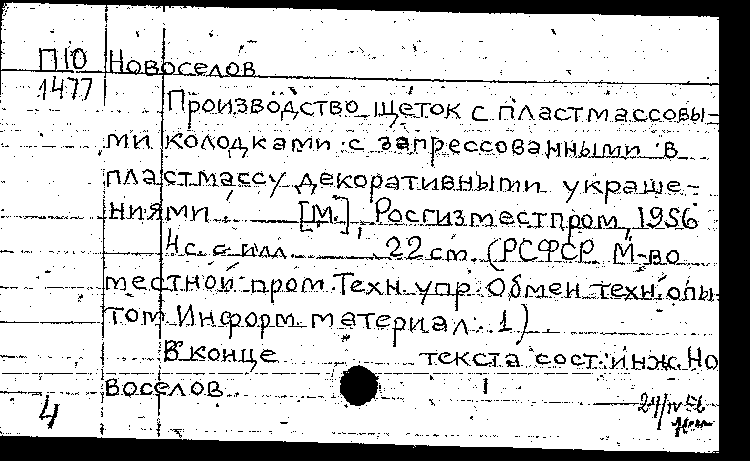 П10 Новоселов
1477
Производство щеток с пластмассовы-
ми колодками с запрессованными в
пластмассу декоративными украше-
ниями. [М.], Росгизместпром, 1956
4 с. с илл. 22 см. (РСФСР. М-во
местной пром. Техн. упр. Обмен техн. опы-
том. Информ. материал. 1)
В конце текста сост.: инж. Но
воселов.
4